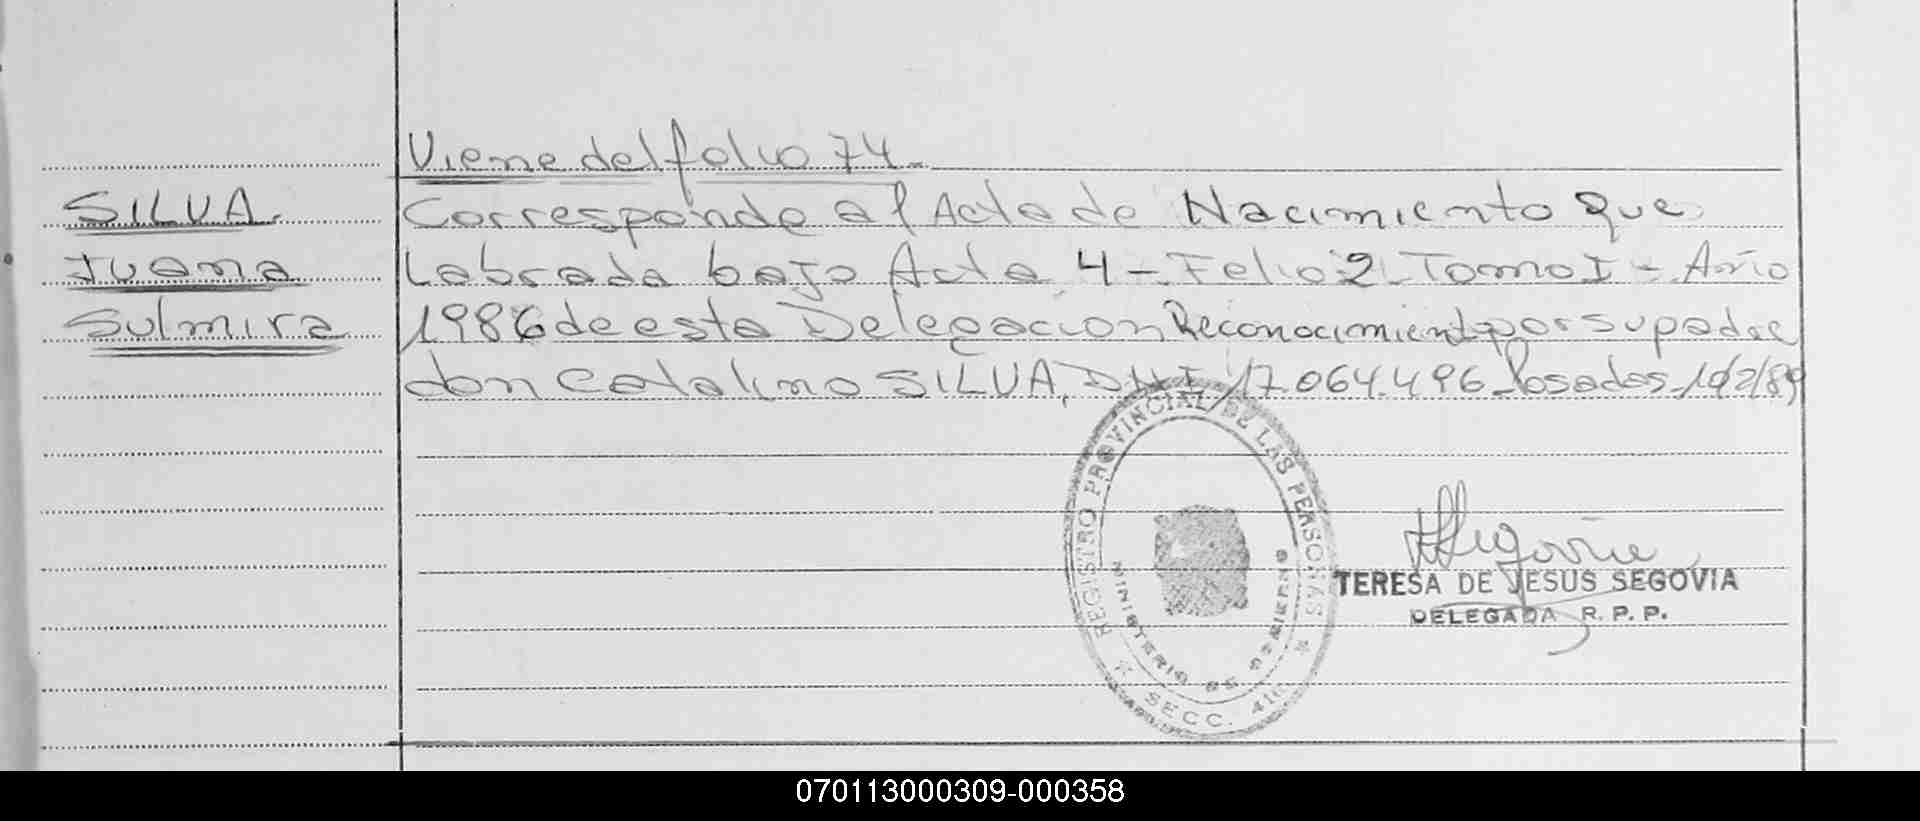 Viene del folio 74.-
SILVA.
Juana
Sulmira
Corresponde al Acta de Nacimiento que
Labrada bajo Acta 4 - Folio 2 - Tomo I - Año
1986 de esta Delegacion Reconocimiento por su padre
don Catalino SILVA, DNI 17.064.496 - Posadas - 10/2/89
REGISTRO PROVINCIAL DE LAS PERSONAS
MINISTERIO DE GOBIERNO
SECC. 410
TSegovia
TERESA DE JESUS SEGOVIA
DELEGADA R. P. P.
070113000309-000358